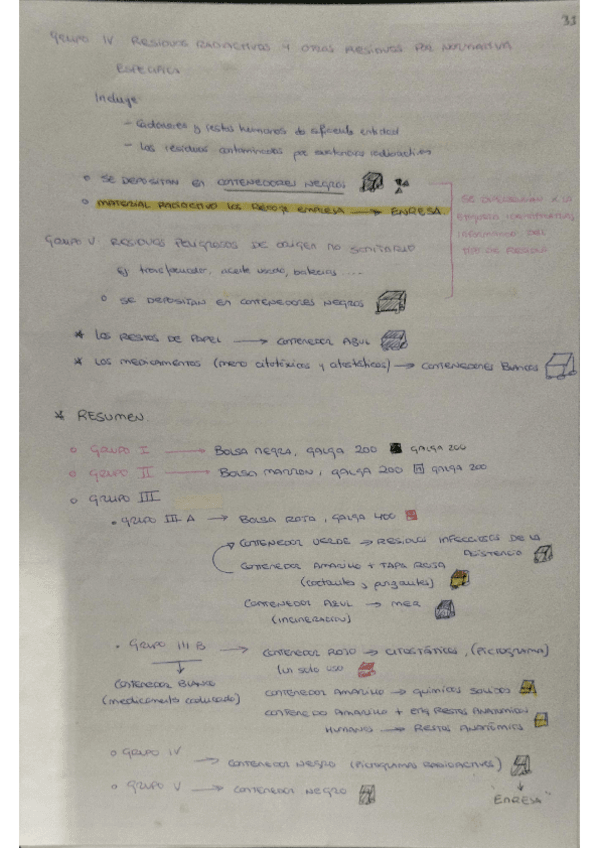 33
GRUPO IV RESIDUOS RADIACTIVOS Y OTROS RESIDUOS POR NORMATIVA
ESPECÍFICA
Incluye
- Cadáveres y restos humanos de suficiente entidad
- Los residuos contaminados por sustancias radioactivas
SE DEPOSITAN EN CONTENEDORES NEGROS
MATERIAL RADIACTIVO LOS RECOGE EMPRESA → ENRESA.
SE A LA
ETIQUETA IDENTIFICATIVA,
DEL
TIPO DE RESIDUO
GRUPO V RESIDUOS PELIGROSOS DE ORIGEN NO SANITARIO
Ej transformador, aceite usado, baterías ....
SE DEPOSITAN EN CONTENEDORES NEGROS
* LOS RESTOS DE PAPEL → CONTENEDOR AZUL
* LOS MEDICAMENTOS (menos citotóxicos y citostáticos) → CONTENEDORES BLANCOS
* RESUMEN.
GRUPO I → BOLSA NEGRA, GALGA 200 GALGA 200
GRUPO II → BOLSA MARRON, GALGA 200 GALGA 200
GRUPO III
• GRUPO III A → BOLSA ROJA, GALGA 400
CONTENEDOR VERDE → RESIDUOS INFECCIOSOS DE LA
ASISTENCIA
CONTENEDOR AMARILLO + TAPA ROJA
(cortantes y punzantes)
CONTENEDOR AZUL → MER
(INCINERACION)
• GRUPO III B → CONTENEDOR ROJO → CITOSTÁTICOS, (PICTOGRAMA)
(un solo uso
CONTENEDOR BLANCO
(medicamento caducado)
CONTENEDOR AMARILLO → QUÍMICOS SOLIDOS
CONTENEDOR AMARILLO + ETIQ RESTOS ANATOMICOS
HUMANOS → RESTOS ANATÓMICOS
GRUPO IV → CONTENEDOR NEGRO (PICTOGRAMAS RADIOACTIVOS)
GRUPO V → CONTENEDOR NEGRO
"ENRESA"